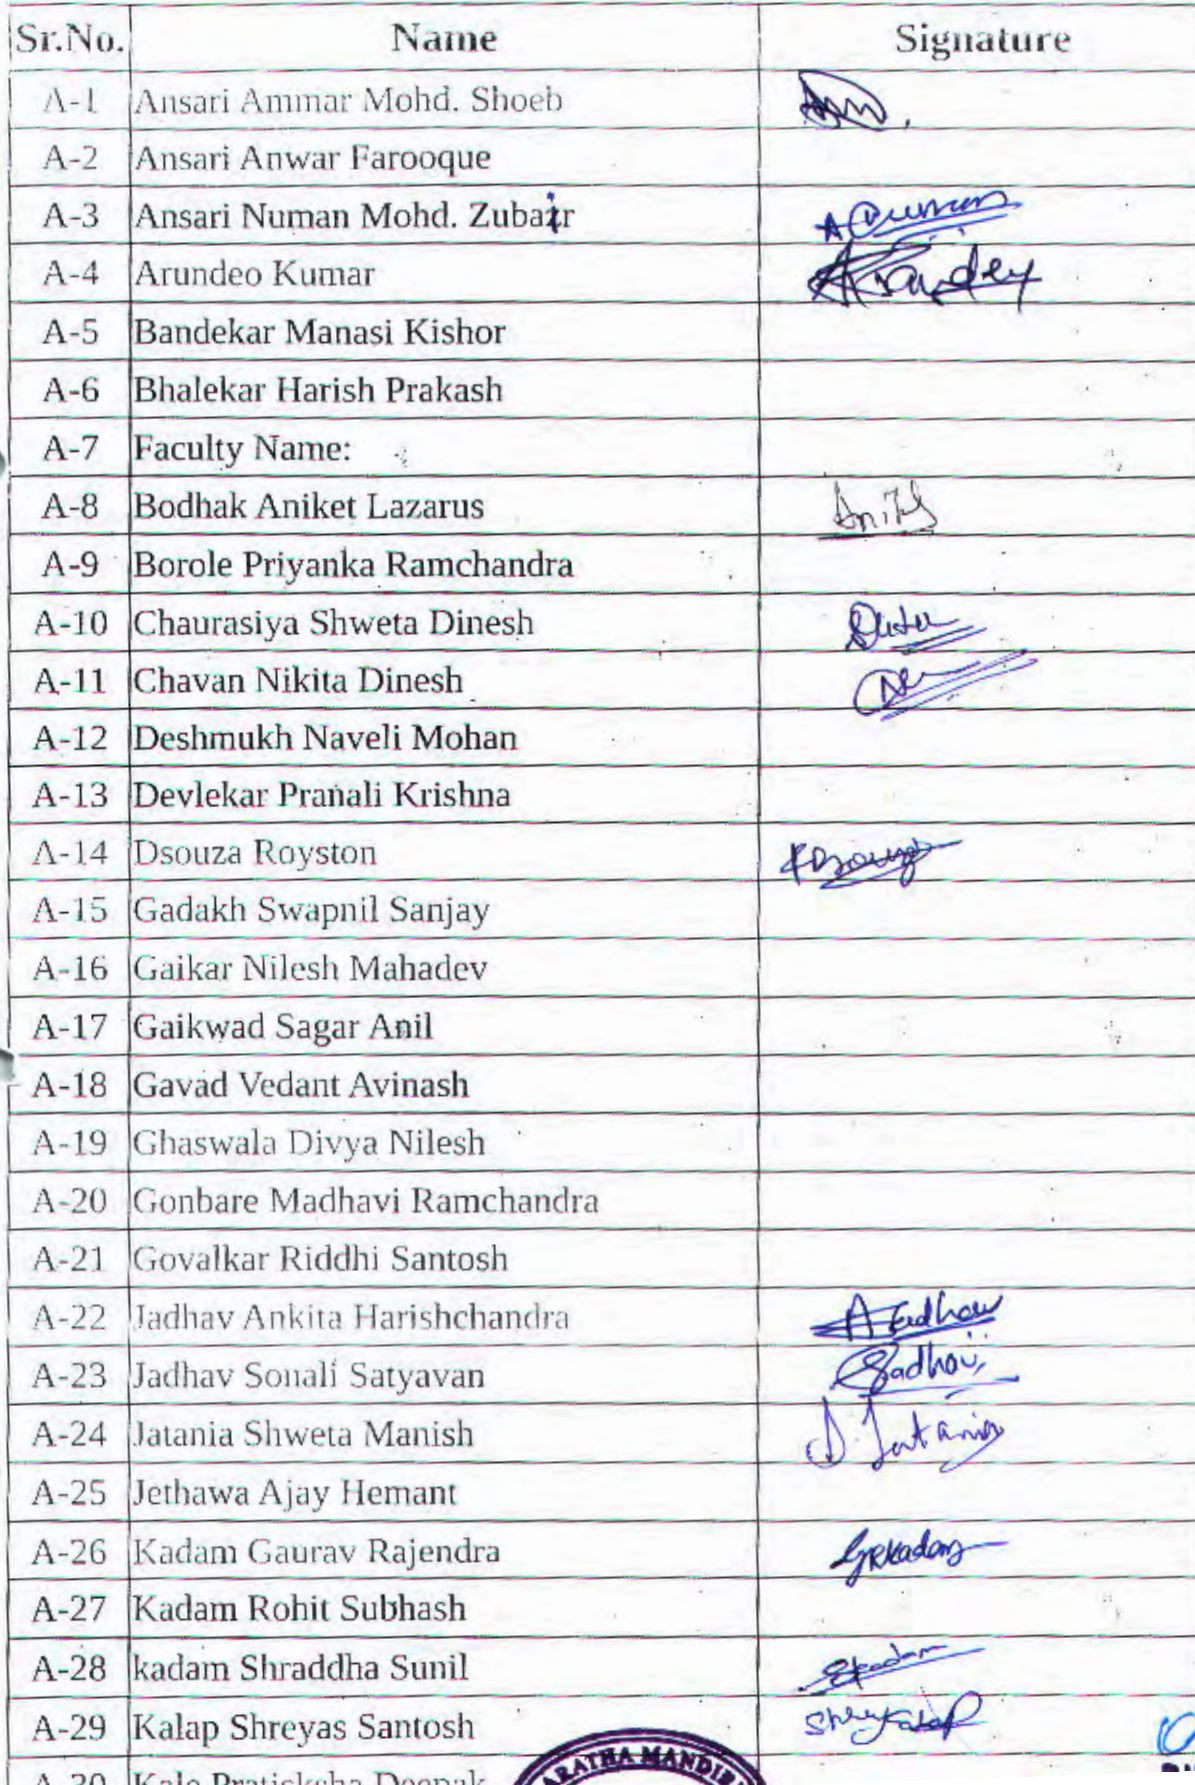 Sr.No. Name Signature
A-1 Ansari Ammar Mohd. Shoeb
A-2 Ansari Anwar Farooque
A-3 Ansari Numan Mohd. Zubair
A-4 Arundeo Kumar
A-5 Bandekar Manasi Kishor
A-6 Bhalekar Harish Prakash
A-7 Faculty Name:
A-8 Bodhak Aniket Lazarus
A-9 Borole Priyanka Ramchandra
A-10 Chaurasiya Shweta Dinesh
A-11 Chavan Nikita Dinesh
A-12 Deshmukh Naveli Mohan
A-13 Devlekar Pranali Krishna
A-14 Dsouza Royston
A-15 Gadakh Swapnil Sanjay
A-16 Gaikar Nilesh Mahadev
A-17 Gaikwad Sagar Anil
A-18 Gavad Vedant Avinash
A-19 Ghaswala Divya Nilesh
A-20 Gonbare Madhavi Ramchandra
A-21 Govalkar Riddhi Santosh
A-22 Jadhav Ankita Harishchandra
A-23 Jadhav Sonali Satyavan
A-24 Jatania Shweta Manish
A-25 Jethawa Ajay Hemant
A-26 Kadam Gaurav Rajendra GRKadam
A-27 Kadam Rohit Subhash
A-28 kadam Shraddha Sunil SKadam
A-29 Kalap Shreyas Santosh
A-30 Kale Pratiksha Deepak